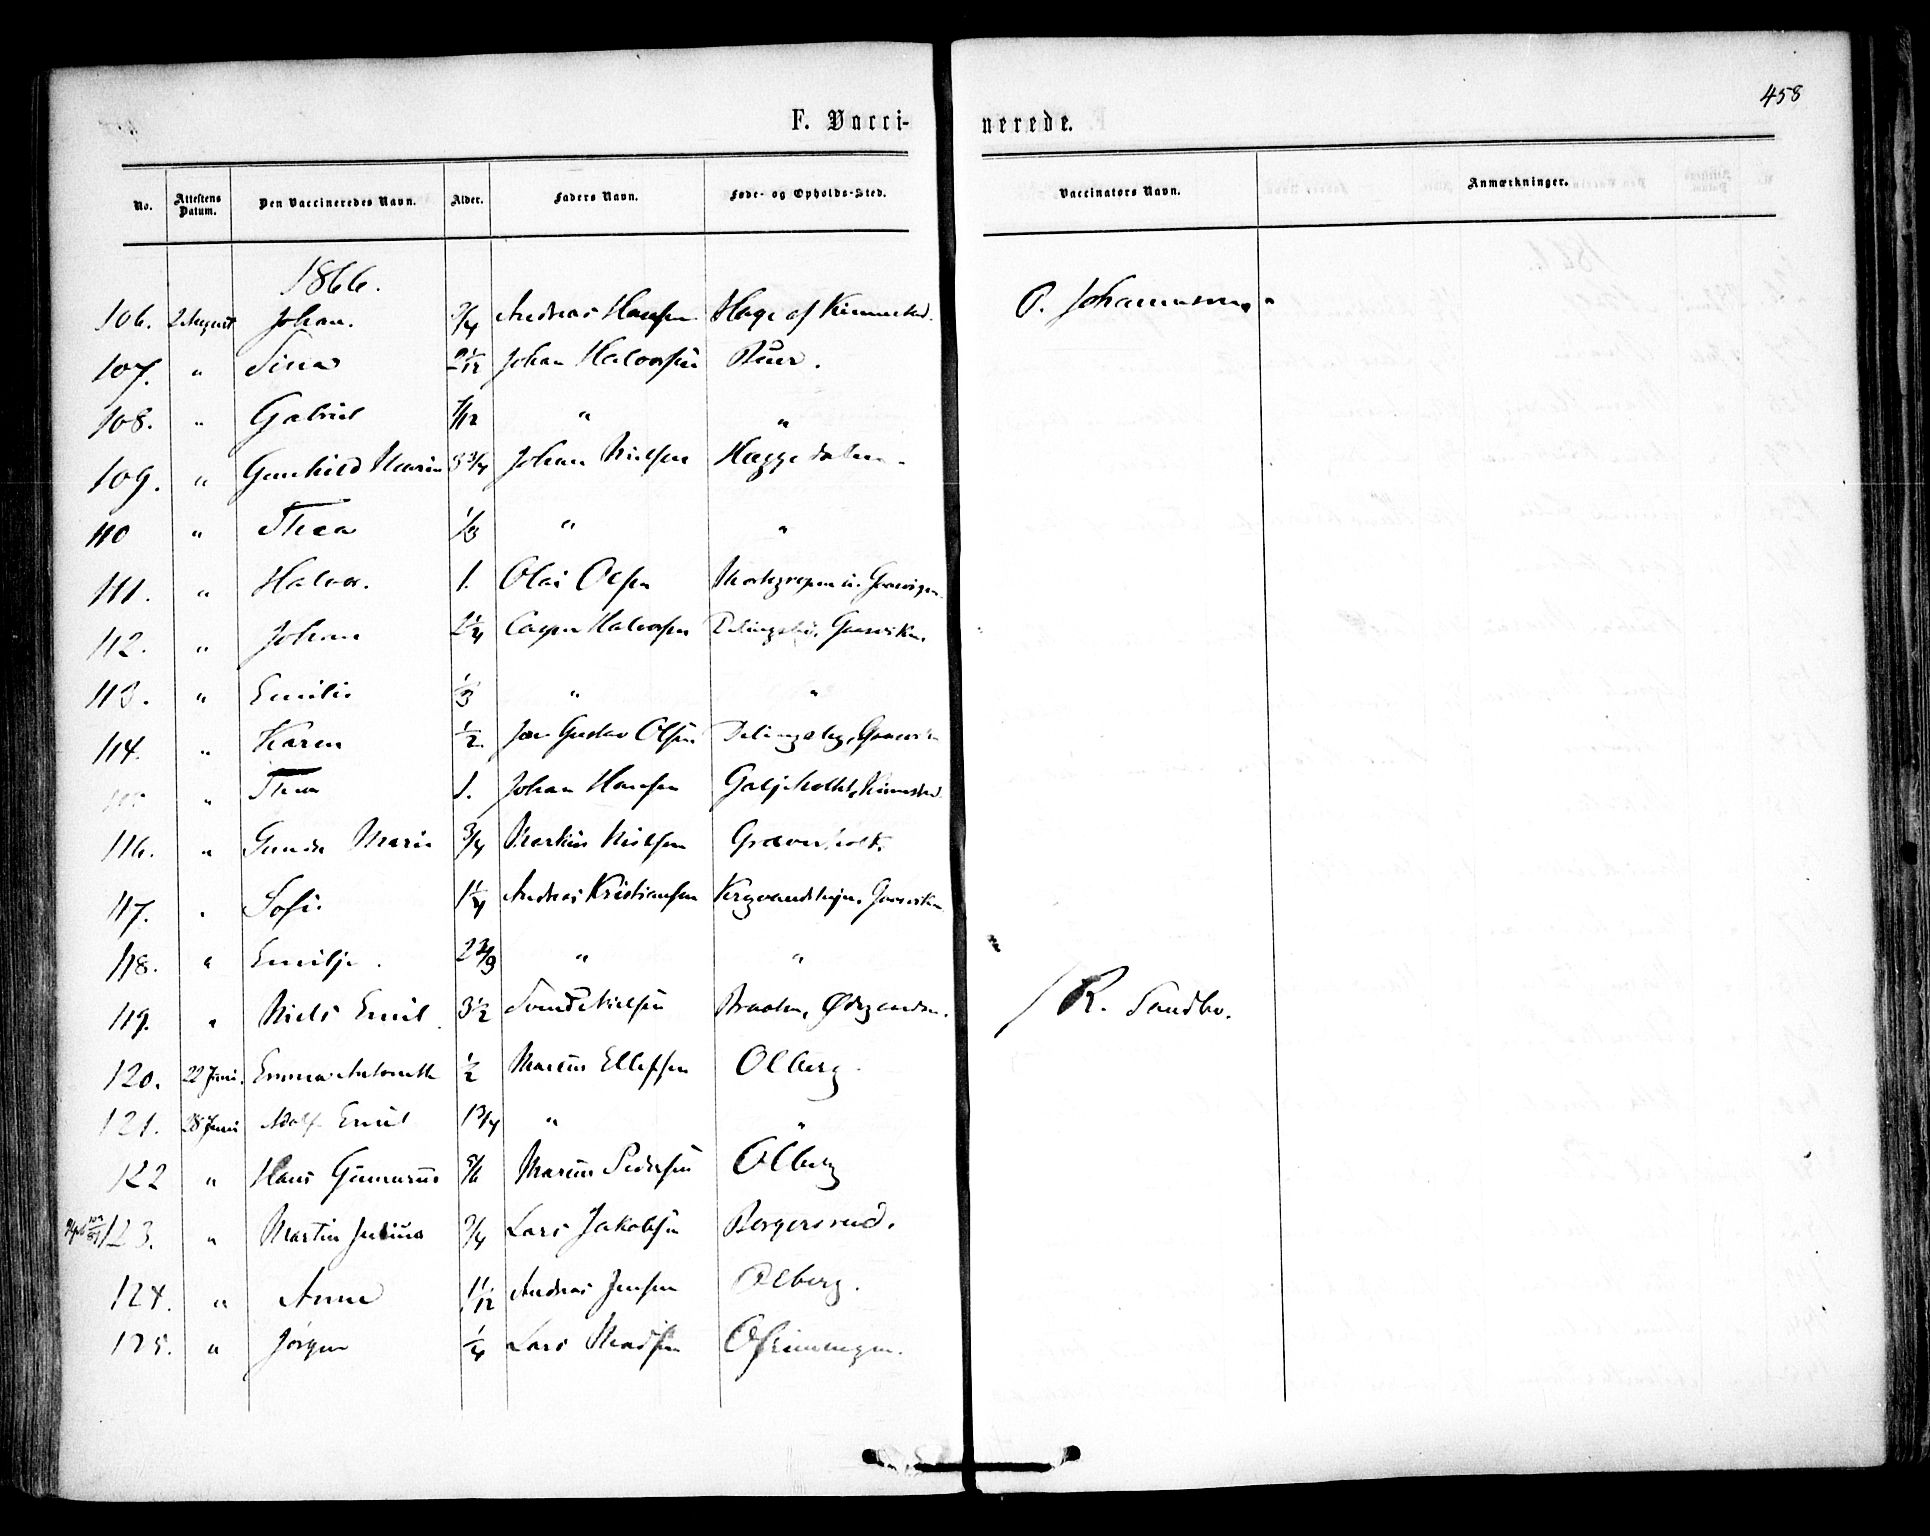 458
F. Vacci- nerede.
No. Attestens Datum. Den Vaccineredes Navn. Alder. Faders Navn. Føde- og Opholds-Sted. Vaccinators Navn. Anmærkninger.
1866.
106. 2 August Johan. 3/4 Andreas Hansen Hage af Kinnestad. P. Johannesen
107. " Tina 2 1/12 Johan Halvorsen Buer.
108. " Gabriel " "
109. " Gunhild Marie 3 3/4 Johan Nielsen Haggedalen.
110 " Thea 1/3 " "
111. " Halvor. 1. Olai Olsen
112. " Johan 2 1/4 Casper Halvorsen Gaasviken.
113. " Emilie 1/3 " "
114. " Karen 1/2. Gustav Olsen
115 " Thea 1. Johan Hansen Galjeholtet, Kinnestad
116. " Gunda Marie 3/4 Markus Nielsen Gravenholt.
117. " Sofi. 1 1/4 Andreas Kristiansen
118. " Emilje. 2 " "
119. " Niels Emil 3 1/2 Nielsen Braaten, R. Sandbo.
120. 22 Juni. Emma Antonette 1/2 Marcus Ellefsen Olberg.
121. 28 Juni Adolf Emil 1 3/4 " "
122 " Hans Gunerius Marcus Pedersen Olberg
123. " Martin Julius 3/4 Lars Jakobsen Borgersrud.
124. " Anne 1 1/12 Andreas Jensen Olberg.
125. " Jörgen 1/4 Lars Madsen